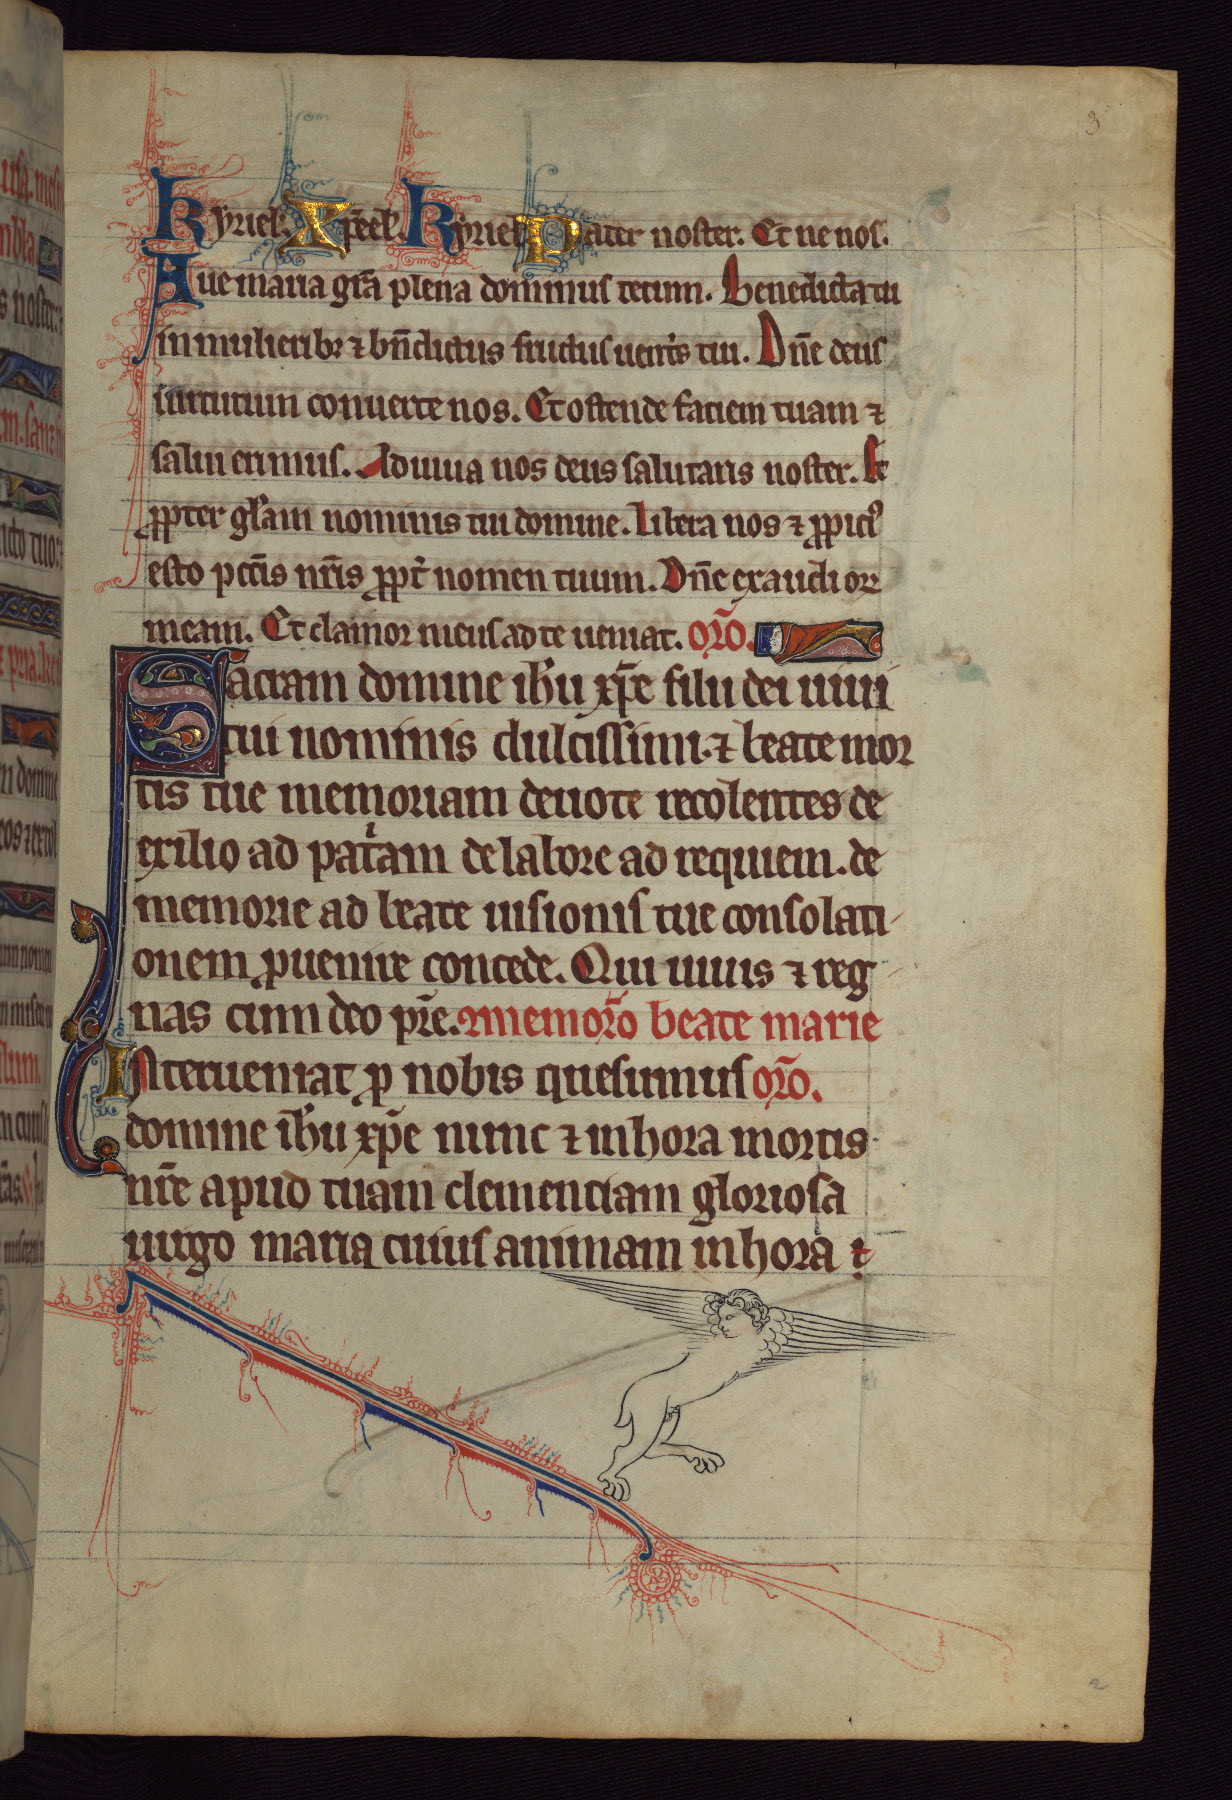 3
Kyriel'. Xp̄eel'. Kyriel'. Pater noster. Et ne nos.
Aue maria gr̄a plena dominus tecum. Benedicta tu
in mulieribȝ ⁊ bn̄dictus fructus uent's tui. Dn̄e deus
uirtutum conuerte nos. Et ostende faciem tuam ⁊
salui erimus. Adiuua nos deus salutaris noster. Et
ꝓpter gl̄am nominis tui domine. Libera nos ⁊ ꝓpici'
esto pctīs nr̄is ꝓpt' nomen tuum. Dn̄e exaudi or̄
meam. Et clamor meus ad te ueniat. or̄o.
Sacram domine ih̄u xp̄e filii dei uiui
tui nominis dulcissimi. ⁊ beate mor
tis tue memoriam deuote recolentes de
exilio ad pat'am de labore ad requiem. de
memorie ad beate uisionis tue consolati
onem ꝑuenire concede. Qui uiuis ⁊ reg
nas cum deo pr̄e. memor̄o beate marie
Interueniat ꝓ nobis quesumus or̄o.
domine ih̄u xp̄e nunc ⁊ in hora mortis
nr̄e apud tuam clementiam gloriosa
uirgo maria cuius animam in hora t
2